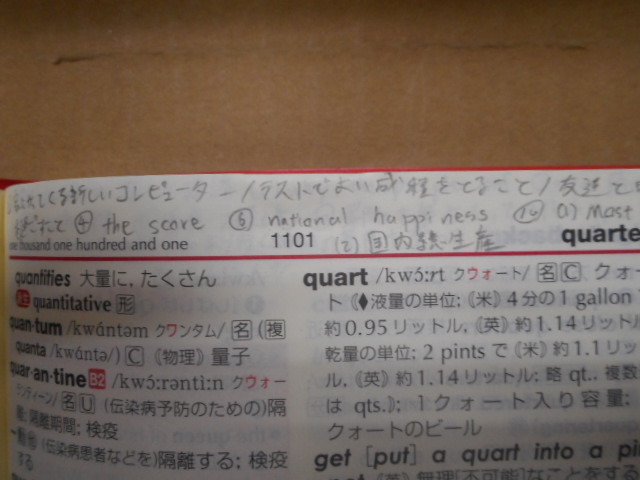 くる新しいコンピューター/テストでよい成績をとること/友達と
④ the score ⑤ national happiness ⑩ (1) Most
(2) 国内総生産
one thousand one hundred and one 1101 quarte
quantities 大量に, たくさん
quantitative 形
quan·tum /kwάntəm クワンタム/ 名 (複
quanta /kwάntə/) C 《物理》量子
quar·an·tine B2 /kwɔ́ːrəntìːn クウォー
ランティーン/ 名 U (伝染病予防のための)隔
離; 隔離期間; 検疫
一動 他 (伝染病患者などを)隔離する; 検疫
する
quart /kwɔ́ːrt クウォート/ 名 C クォー
ト (♦液量の単位; 《米》4分の1 gallon
約0.95リットル, 《英》約1.14リット
乾量の単位; 2 pints で《米》約1.1リッ
ル, 《英》約1.14リットル; 略 qt.. 複数
は qts.); 1クォート入り容量;
クォートのビール
get [put] a quart into a pi
《英》無理[不可能]なことをする